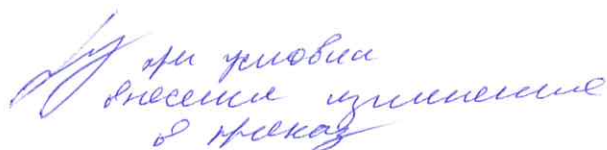 при условии
внесения изменения
в приказ